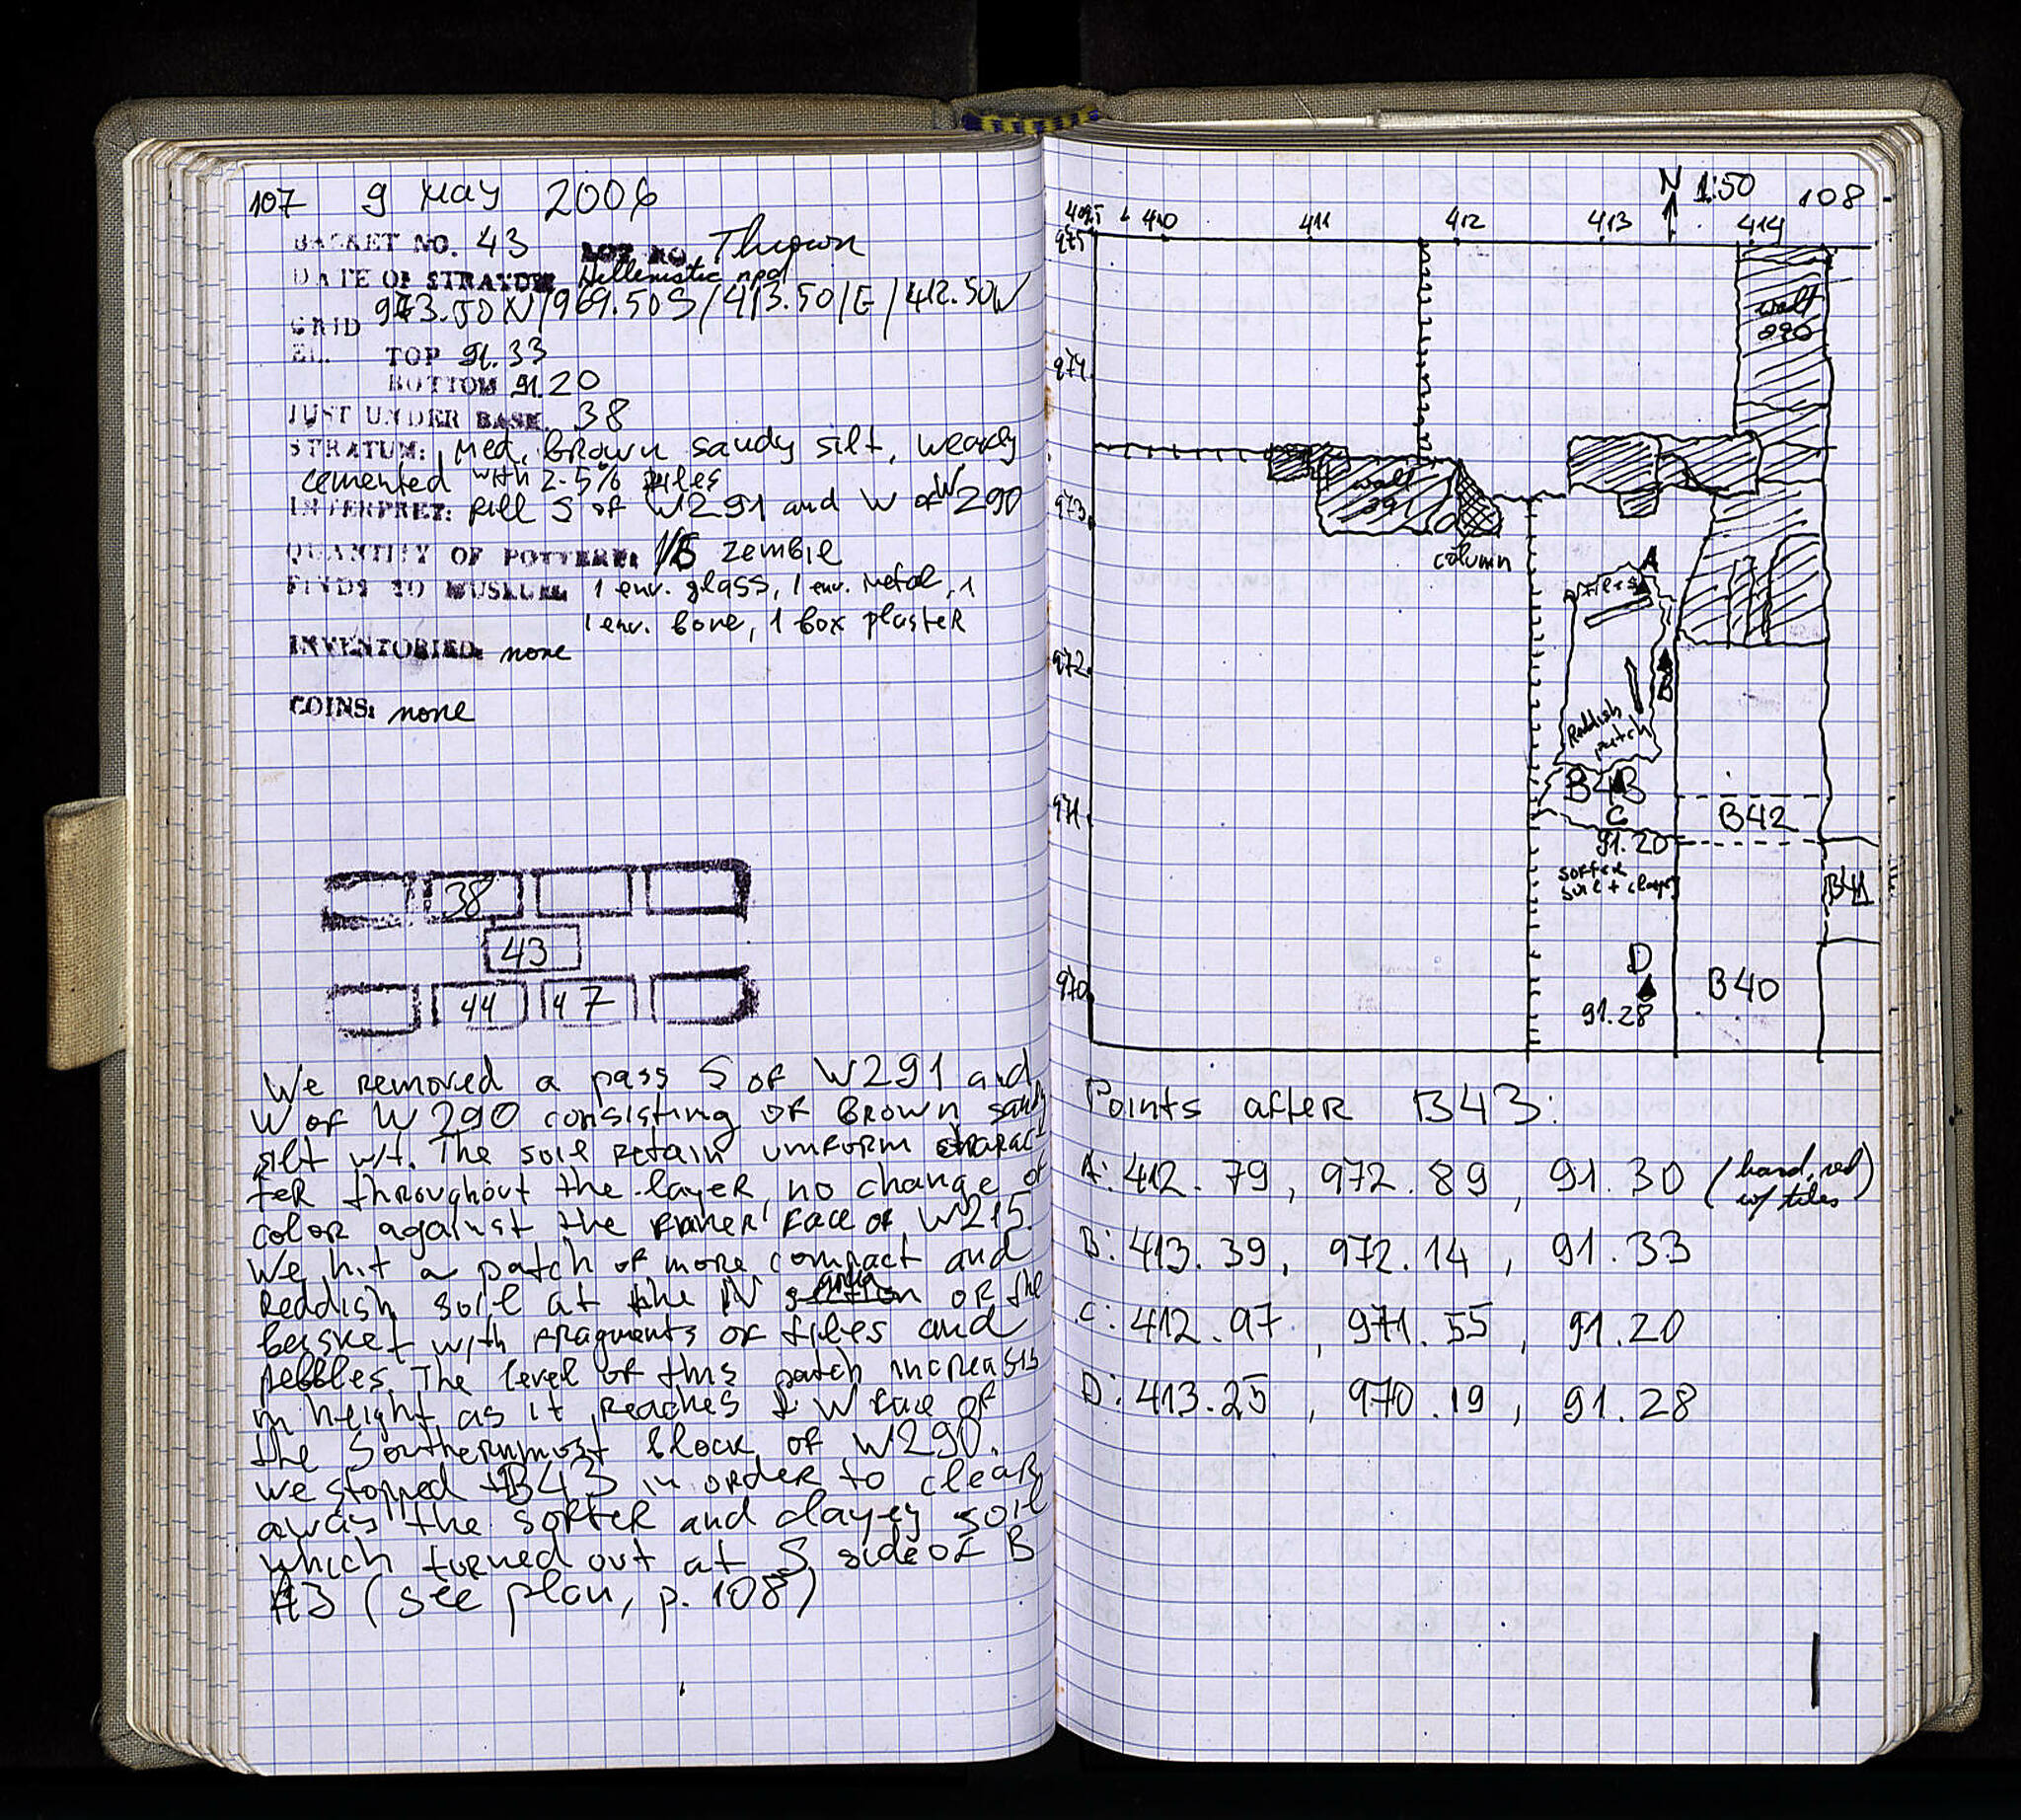 107 9 May 2006
BASKET NO. 43 LOT NO. Thrown
DATE OF STRATUM Hellenistic npd
GRID 973.50N/969.50S/413.50/E/412.50W
EL. TOP 91.33
BOTTOM 91.20
JUST UNDER BASK. 38
STRATUM: Med. brown sandy silt, weakly
cemented with 2-5%
INTERPRET: fill S of W291 and W of W290
QUANTITY OF POTTERY: 1/5 zembil
FINDS TO MUSEUM: 1 env. glass, 1 env. metal, 1
1 env. bone, 1 box plaster
INVENTORIED: none
COINS: none
38
43
44 47
We removed a pass S of W291 and
W of W290 consisting of brown sandy
silt w/t. The soil retain uniform charac
ter throughout the layer, no change of
color against the face of W215.
We hit a patch of more compact and
reddish soil at the N area of the
basket with fragments of tiles and
pebbles. The level of this patch increasis
in height as it reaches t W face of
the Southernmost block of W290.
We stopped B43 in order to clear
away the softer and clayey soil
which turned out at S side of B
43 (see plan, p. 108)
N 1:50 108
409.5 410 411 412 413 414
975
wall
290
974
wall
291
973
column
A
tiles
972
B
Reddish
patch
B43
971
C
B42
91.20
softer
soil + clayey
B41
D
970
B40
91.28
Points after B43:
A: 412.79, 972.89, 91.30 (hard, red
w/ tiles)
B: 413.39, 972.14, 91.33
C: 412.97, 971.55, 91.20
D: 413.25, 970.19, 91.28